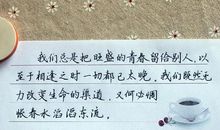 我们总是把旺盛的青春留给别人,以
至于相逢之时一切都已太晚。我们既然无
力改变生命的渠道,又何必惆
怅春水滔滔东流。